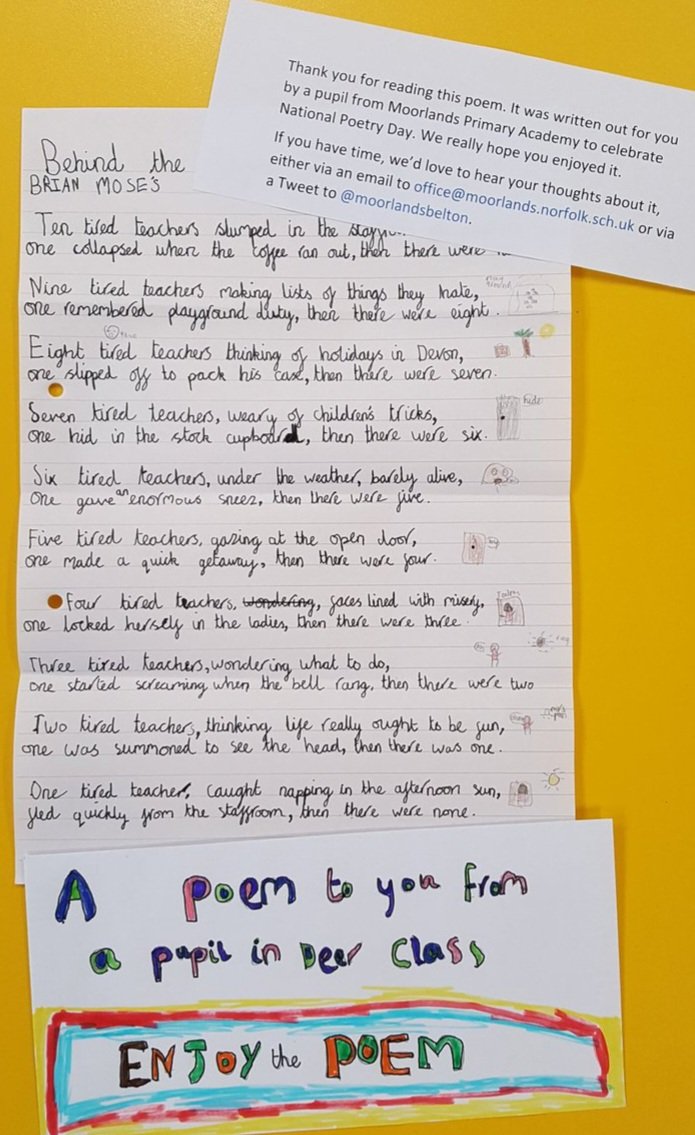 Thank you for reading this poem. It was written out for you
by a pupil from Moorlands Primary Academy to celebrate
National Poetry Day. We really hope you enjoyed it.
If you have time, we'd love to hear your thoughts about it,
either via an email to office@moorlands.norfolk.sch.uk or via
a Tweet to @moorlandsbelton.
Behind the
BRIAN MOSES
Ten tired teachers slumped in the
one collapsed when the coffee ran out, then there were
Nine tired teachers making lists of things they hate,
one remembered playground duty, then there were eight.
Eight tired teachers thinking of holidays in Devon,
one slipped off to pack his case, then there were seven.
Seven tired teachers, weary of children's tricks,
hide
one hid in the stock cupboard, then there were six.
Six tired teachers, under the weather, barely alive,
one gave an enormous sneez, then there were five.
Five tired teachers, gazing at the open door,
one made a quick getaway, then there were four.
Four tired teachers, wondering, faces lined with misery,
one locked herself in the ladies, then there were three.
Three tired teachers, wondering what to do,
one started screaming when the bell rang, then there were two
Two tired teachers, thinking life really ought to be fun,
one was summoned to see the head, then there was one.
One tired teacher, caught napping in the afternoon sun,
fled quickly from the staffroom, then there were none.
A poem to you from
a pupil in Deer Class
ENJOY the POEM